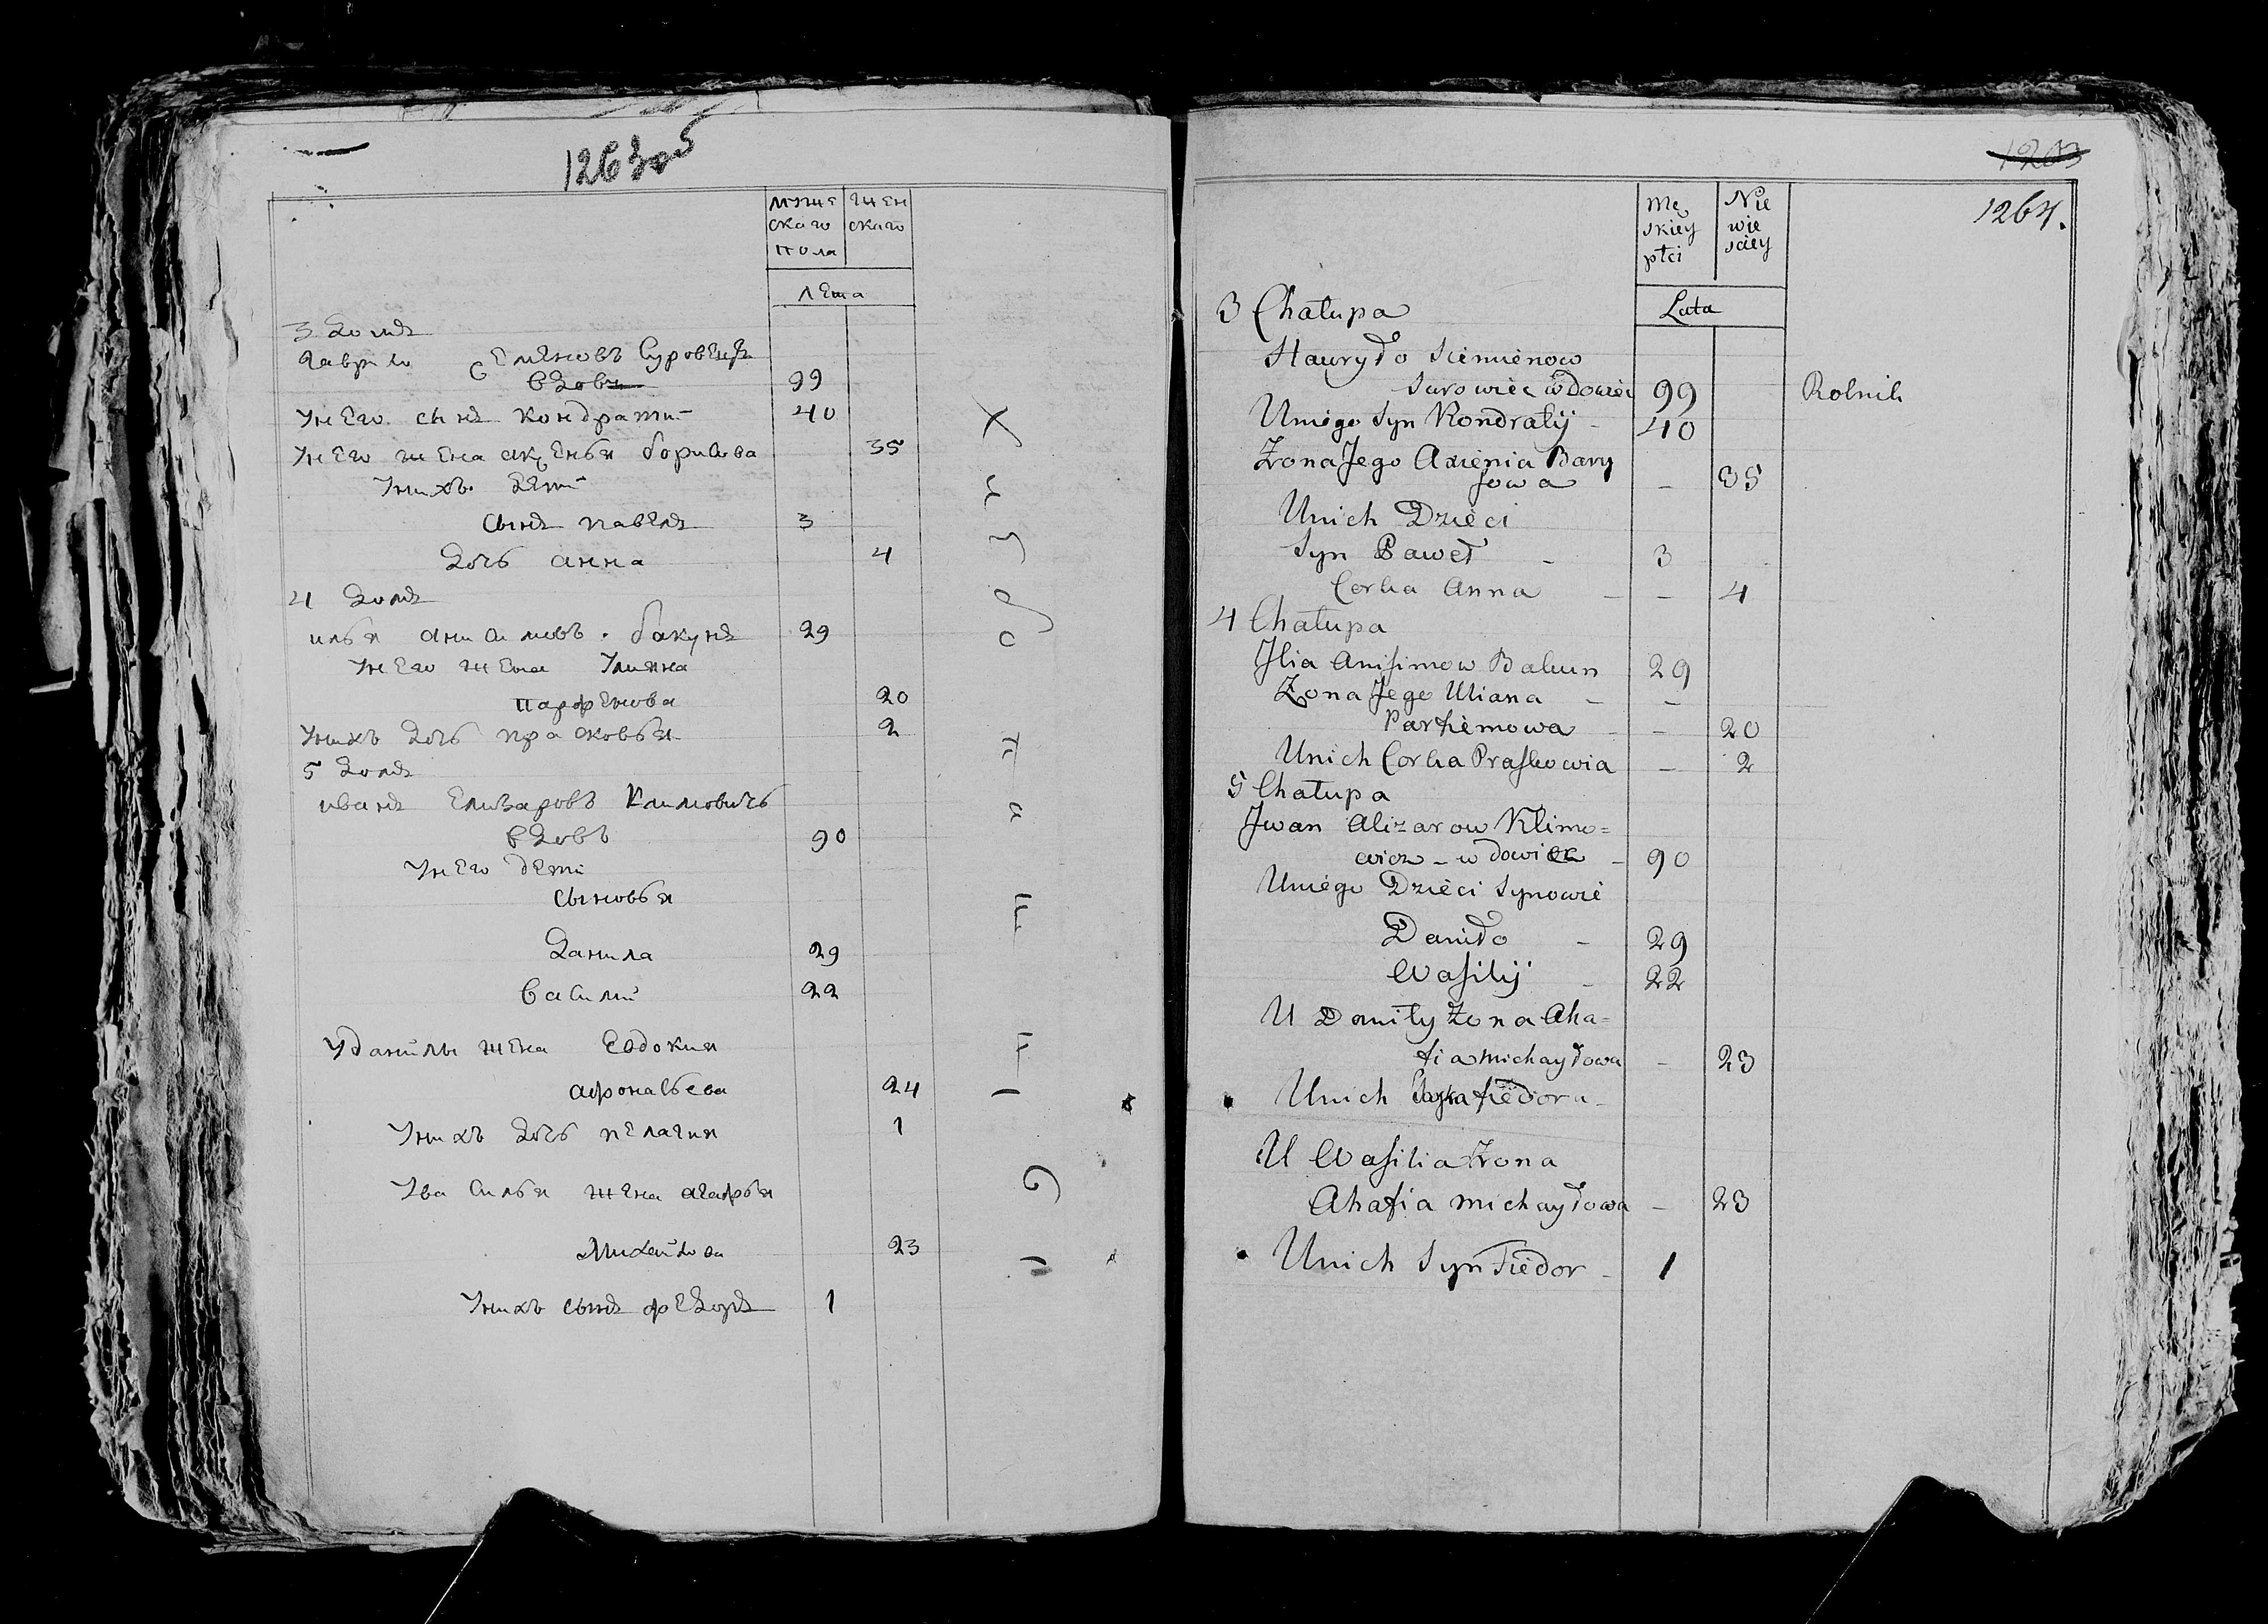 1263 об
муже
ского
пола
жен
ского
лета
3 домъ
Гаврило Семеновъ Суровецъ
вдовъ 99
у него сынъ Кондрати 40
у него жена Аксенья Борисова 35
у нихъ дети
сынъ Павелъ 3
дочь Анна 4
4 домъ
Илья Анисимовъ Бакунъ 29
у него жена Ульяна
Парфенова 20
у нихъ дочь Прасковья 2
5 домъ
Иванъ Елизаровъ Климовичь
вдовъ 90
у него дети
сыновья
Данила 29
Василий 22
у Данилы жена Евдокия
Афонасьева 24
у нихъ дочь Пелагия 1
у Василья жена Агафья
Михайлова 23
у нихъ сынъ Федоръ 1
1203
1264.
Mę
skiey
płci
Nie
wie
sciey
Lata
3 Chałupa
Hauryło Siemienow
Surowiec wdowiec 99 Rolnik
U niego Syn Kondratij - 40
Zona Jego Axienia Bary
sowa - 35
U nich Dzieci
Syn Paweł - 3
Corka Anna - - 4
4 Chałupa
Jlia Anisimow Bakun 29
Zona Jego Uliana - -
Parfiemowa - - 20
U nich Corka Praskowia - 2
5 Chałupa
Jwan Alizarow Klimo=
wicz - wdowiec - 90
U niego Dzieci Synowie
Daniło - 29
Wasilij - 22
U Daniły Zona Aha=
fia Michayłowa - 23
U nich Fiedora -
U Wasilia Zona
Ahafia Michayłowa - 23
U nich Syn Fiedor - 1